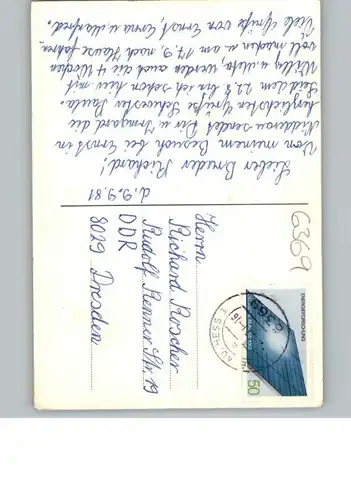 d. 9.9.81
Lieber Bruder Richard!
Von meinem Besuch bei Ernst in
Nidderau sendet Dir u. Irmgard die
herzlichsten Grüße Schwester Paula.
Seid dem 22.8 bin ich schon hier mit
Willy u. Meta, werden auch die 4 Wochen
voll machen u. am 17.9. nach Hause fahren.
Viele Grüße von Ernst, Erna u. Manfred.
6369
ENERGIEFORSCHUNG
50
6369
Herrn
Richard Roscher
Rudolf Renner Str. 19
DDR
8029 Dresden